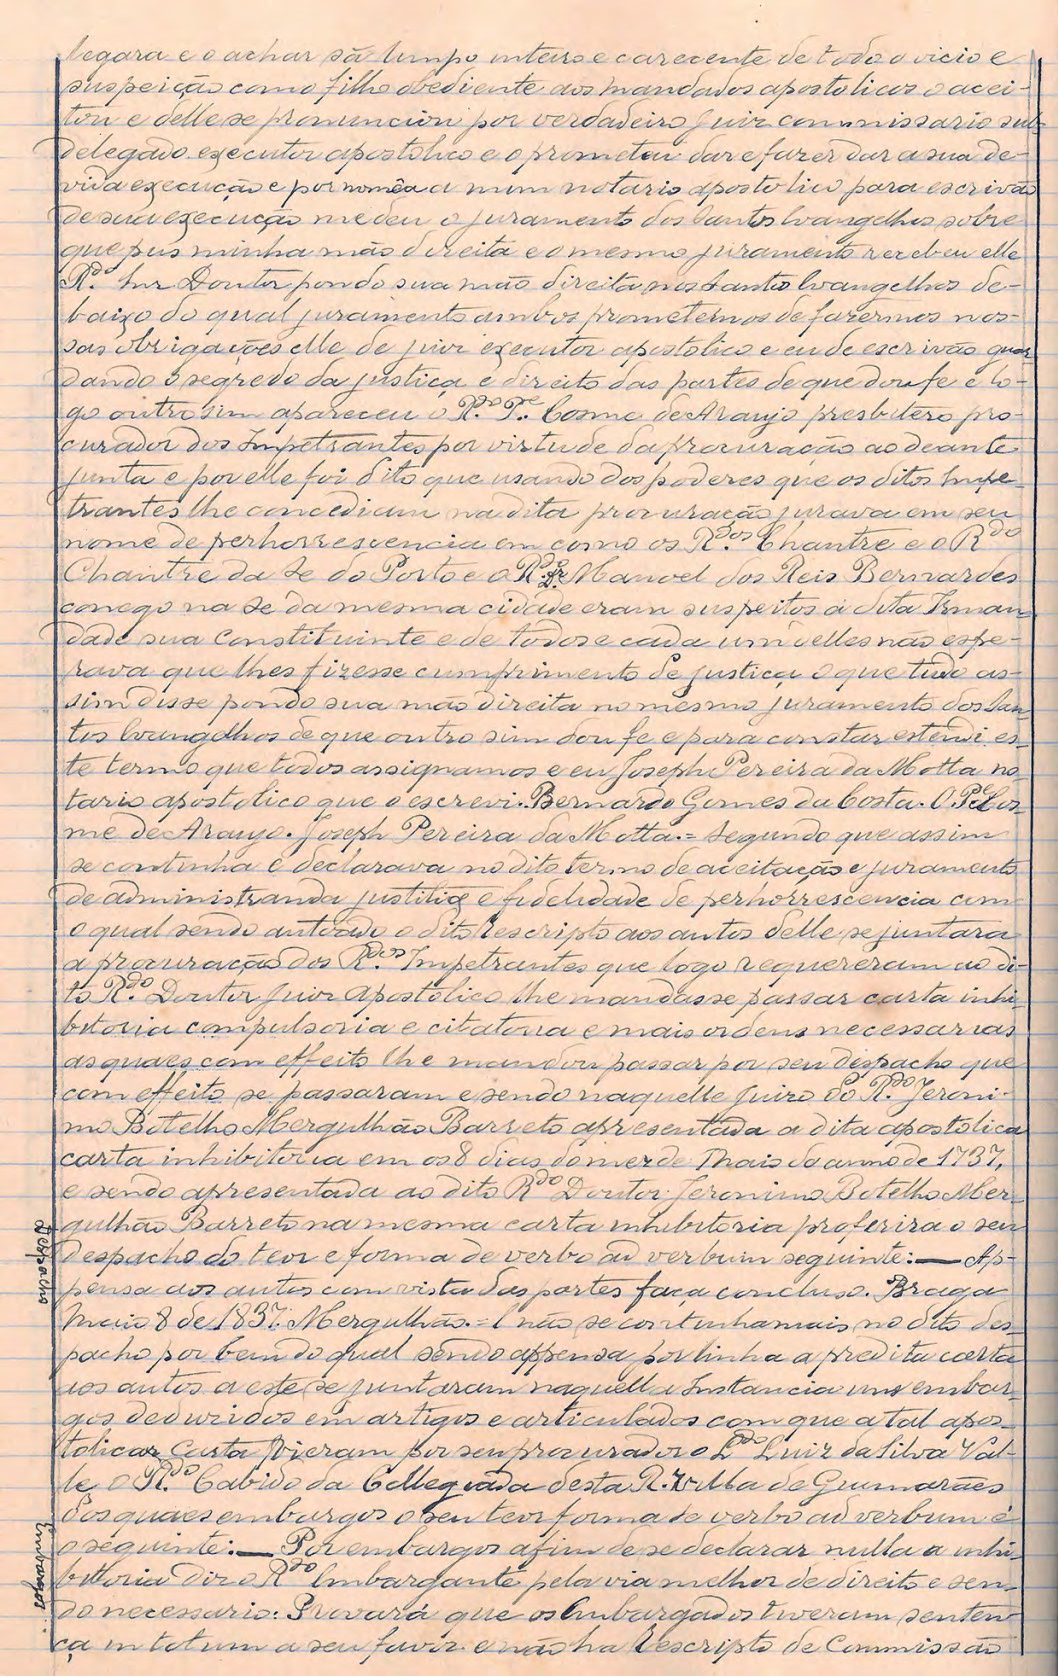 legara e o achar sã limpo inteiro e carecente de todo o vicio e
suspeição como filho obediente aos mandados apostolicos o acei-
tou e delle se pronunciou por verdadeiro juiz commissario sub-
delegado executor apostolico e o prometeu dar e fazer dar a sua de-
vida execução e por nomêa a mim notario apostolico para escrivão
de sua execução me deu o juramento dos Santos Evangelhos sobre
que pus minha mão direita e o mesmo juramento recebeu elle
R.do Snr Doutor pondo sua mão direita nos Santos Evangelhos de-
baixo do qual juramento ambos prometemos de fazermos nos-
sas obrigações elle de juiz executor apostolico e eu de escrivão guar-
dando o segredo da justiça e direito das partes de que dou fe e lo-
go outro sim apareceu o R.do P.e Cosme de Araujo presbitero pro-
curador dos Impetrantes por virtude da procuração ao deante
junta e por elle foi dito que usando dos poderes que os ditos Impe-
trantes lhe concediam na dita procuração jurava em seu
nome de perhorrescencia em como os R.dos Chantre e o R.do
Chantre da Se do Porto e o R.do Dr. Manoel dos Reis Bernardes
conego na Se da mesma cidade eram suspeitos á dita Irman-
dade sua Constituinte e de todos e cada um delles não espe-
rava que lhes fizesse cumprimento de justiça o que tudo as-
sim disse pondo sua mão direita no mesmo juramento dos San-
tos Evangelhos de que outro sim dou fe e para constar estendi es-
te termo que todos assignamos e eu Joseph Pereira da Motta no-
tario apostolico que o escrevi. Bernardo Gomes da Costa. O P.e Cos-
me de Araujo. Joseph Pereira da Motta.= Segundo que assim
se continha e declarava no dito termo de aceitação e juramento
de administranda justitia e fidelidade de perhorrescencia com
o qual sendo autoado o dito rescripto aos autos delle se juntara
a procuração dos R.dos Impetrantes que logo requereram ao di-
to R.do Doutor Juiz Apostolico lhe mandasse passar carta inhi-
bitoria compulsoria e citatoria e mais ordens necessarias
as quaes com effeito lhe mandou passar por seu despacho que
com effeito se passaram e sendo naquelle Juizo do R.do Jeroni-
mo Botelho Mergulhão Barreto apresentada a dita apostolica
carta inhibitoria em os 8 dias do mez de Maio do anno de 1737,
e sendo apresentada ao dito R.do Doutor Jeronimo Botelho Mer-
gulhão Barreto na mesma carta inhibitoria proferira o seu
despacho do teor e forma de verbo ad verbum seguinte: — Ap-
Despacho
pensa aos autos com vista das partes faça concluso. Braga
Maio 8 de 1837. Mergulhão.= E não se continha mais no dito des-
pacho por bem do qual sendo appensa por linha a predita carta
aos autos a este se juntaram naquella Instancia uns embar-
gos deduzidos em artigos e articulados com que a tal apos-
tolica Carta vieram por seu procurador o L.do Luiz da Silva Val-
le O R.do Cabido da Collegiada desta R. Villa de Guimarães
dos quaes embargos o seu teor forma de verbo ad verbum é
o seguinte: — Por embargos afim de se declarar nulla a inhi-
Embargos
bitoria diz o R.do Embargante pela via melhor de direito e sen-
do necessario: Provará que os Embargados tiveram senten-
ça in totum a seu favor e não ha Rescripto de Commissão